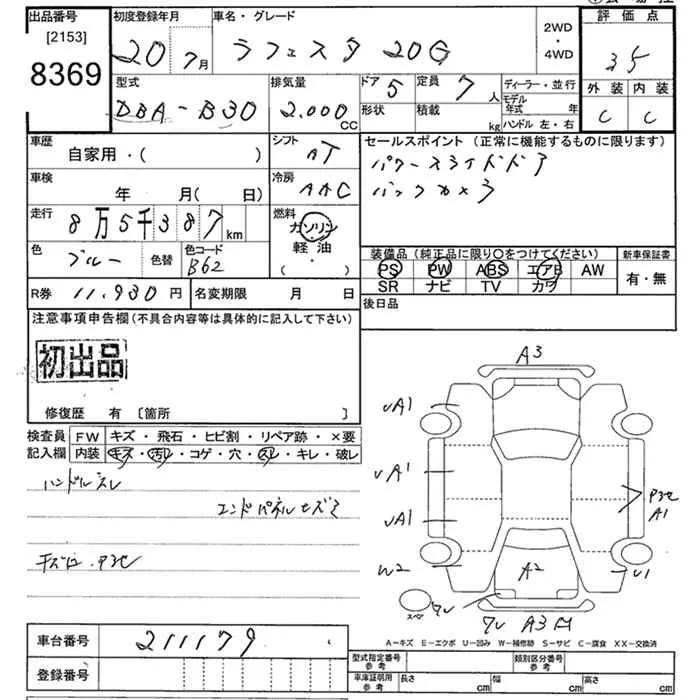 出品番号
[2153]
8369
初度登録年月
20年 7月
車名・グレード
ラフェスタ 20G
2WD
・
4WD
評価点
3.5
外装 内装
C C
型式
DBA-B30
排気量
2.000
CC
ドア 5
定員 7人
形状
積載
kg
ディーラー・並行
モデル年式 年
ハンドル 左・右
車歴
自家用・( )
シフト
AT
セールスポイント (正常に機能するものに限ります)
パワースライドドア
バックカメラ
車検
年 月( 日)
冷房
AAC
走行
8万5千387km
燃料
ガソリン
軽油
( ・ )
色
ブルー
色替
色コード
B62
装備品 (純正品に限り○をつけてください)
PS PW ABS エアB AW
SR ナビ TV カワ
新車保証書
有・無
R券 11.930円
名変期限 月 日
後日品
注意事項申告欄 (不具合内容等は具体的に記入して下さい)
初出品
修復歴 有 [箇所 ]
検査員
記入欄
FW キズ・飛石・ヒビ割・リペア跡・×要
内装 キズ・汚レ・コゲ・穴・スレ・キレ・破レ
ハンドルスレ
A3
UA1
UA1
UA1
W2
A2
A1
U1
スペア
A3
A-キズ E-エクボ U-凹み W-補修跡 S-サビ C-腐食 XX-交換済
車台番号
211179
登録番号
型式指定番号
参考
類別区分番号
参考
車庫証明
参考
長さ cm
幅 cm
高さ cm